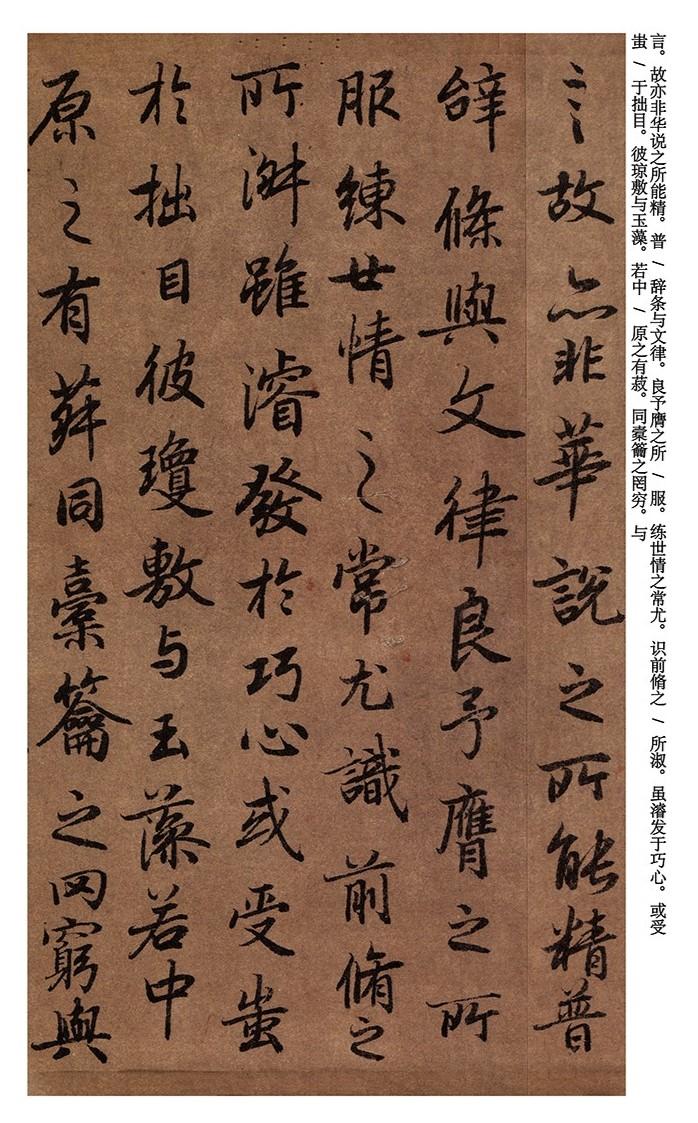 言。故亦非华说之所能精。普/辞条与文律。良予膺之所/服。练世情之常尤。识前脩之/所淑。虽濬发于巧心。或受
蚩/于拙目。彼琼敷与玉藻。若中/原之有菽。同橐籥之罔穷。与
言故亦非華說之所能精普
辝條與文律良予膺之所
服練世情之常尤識前脩之
所淑雖濬發於巧心或受蚩
於拙目彼瓊敷与玉藻若中
原之有菽同橐籥之罔窮與